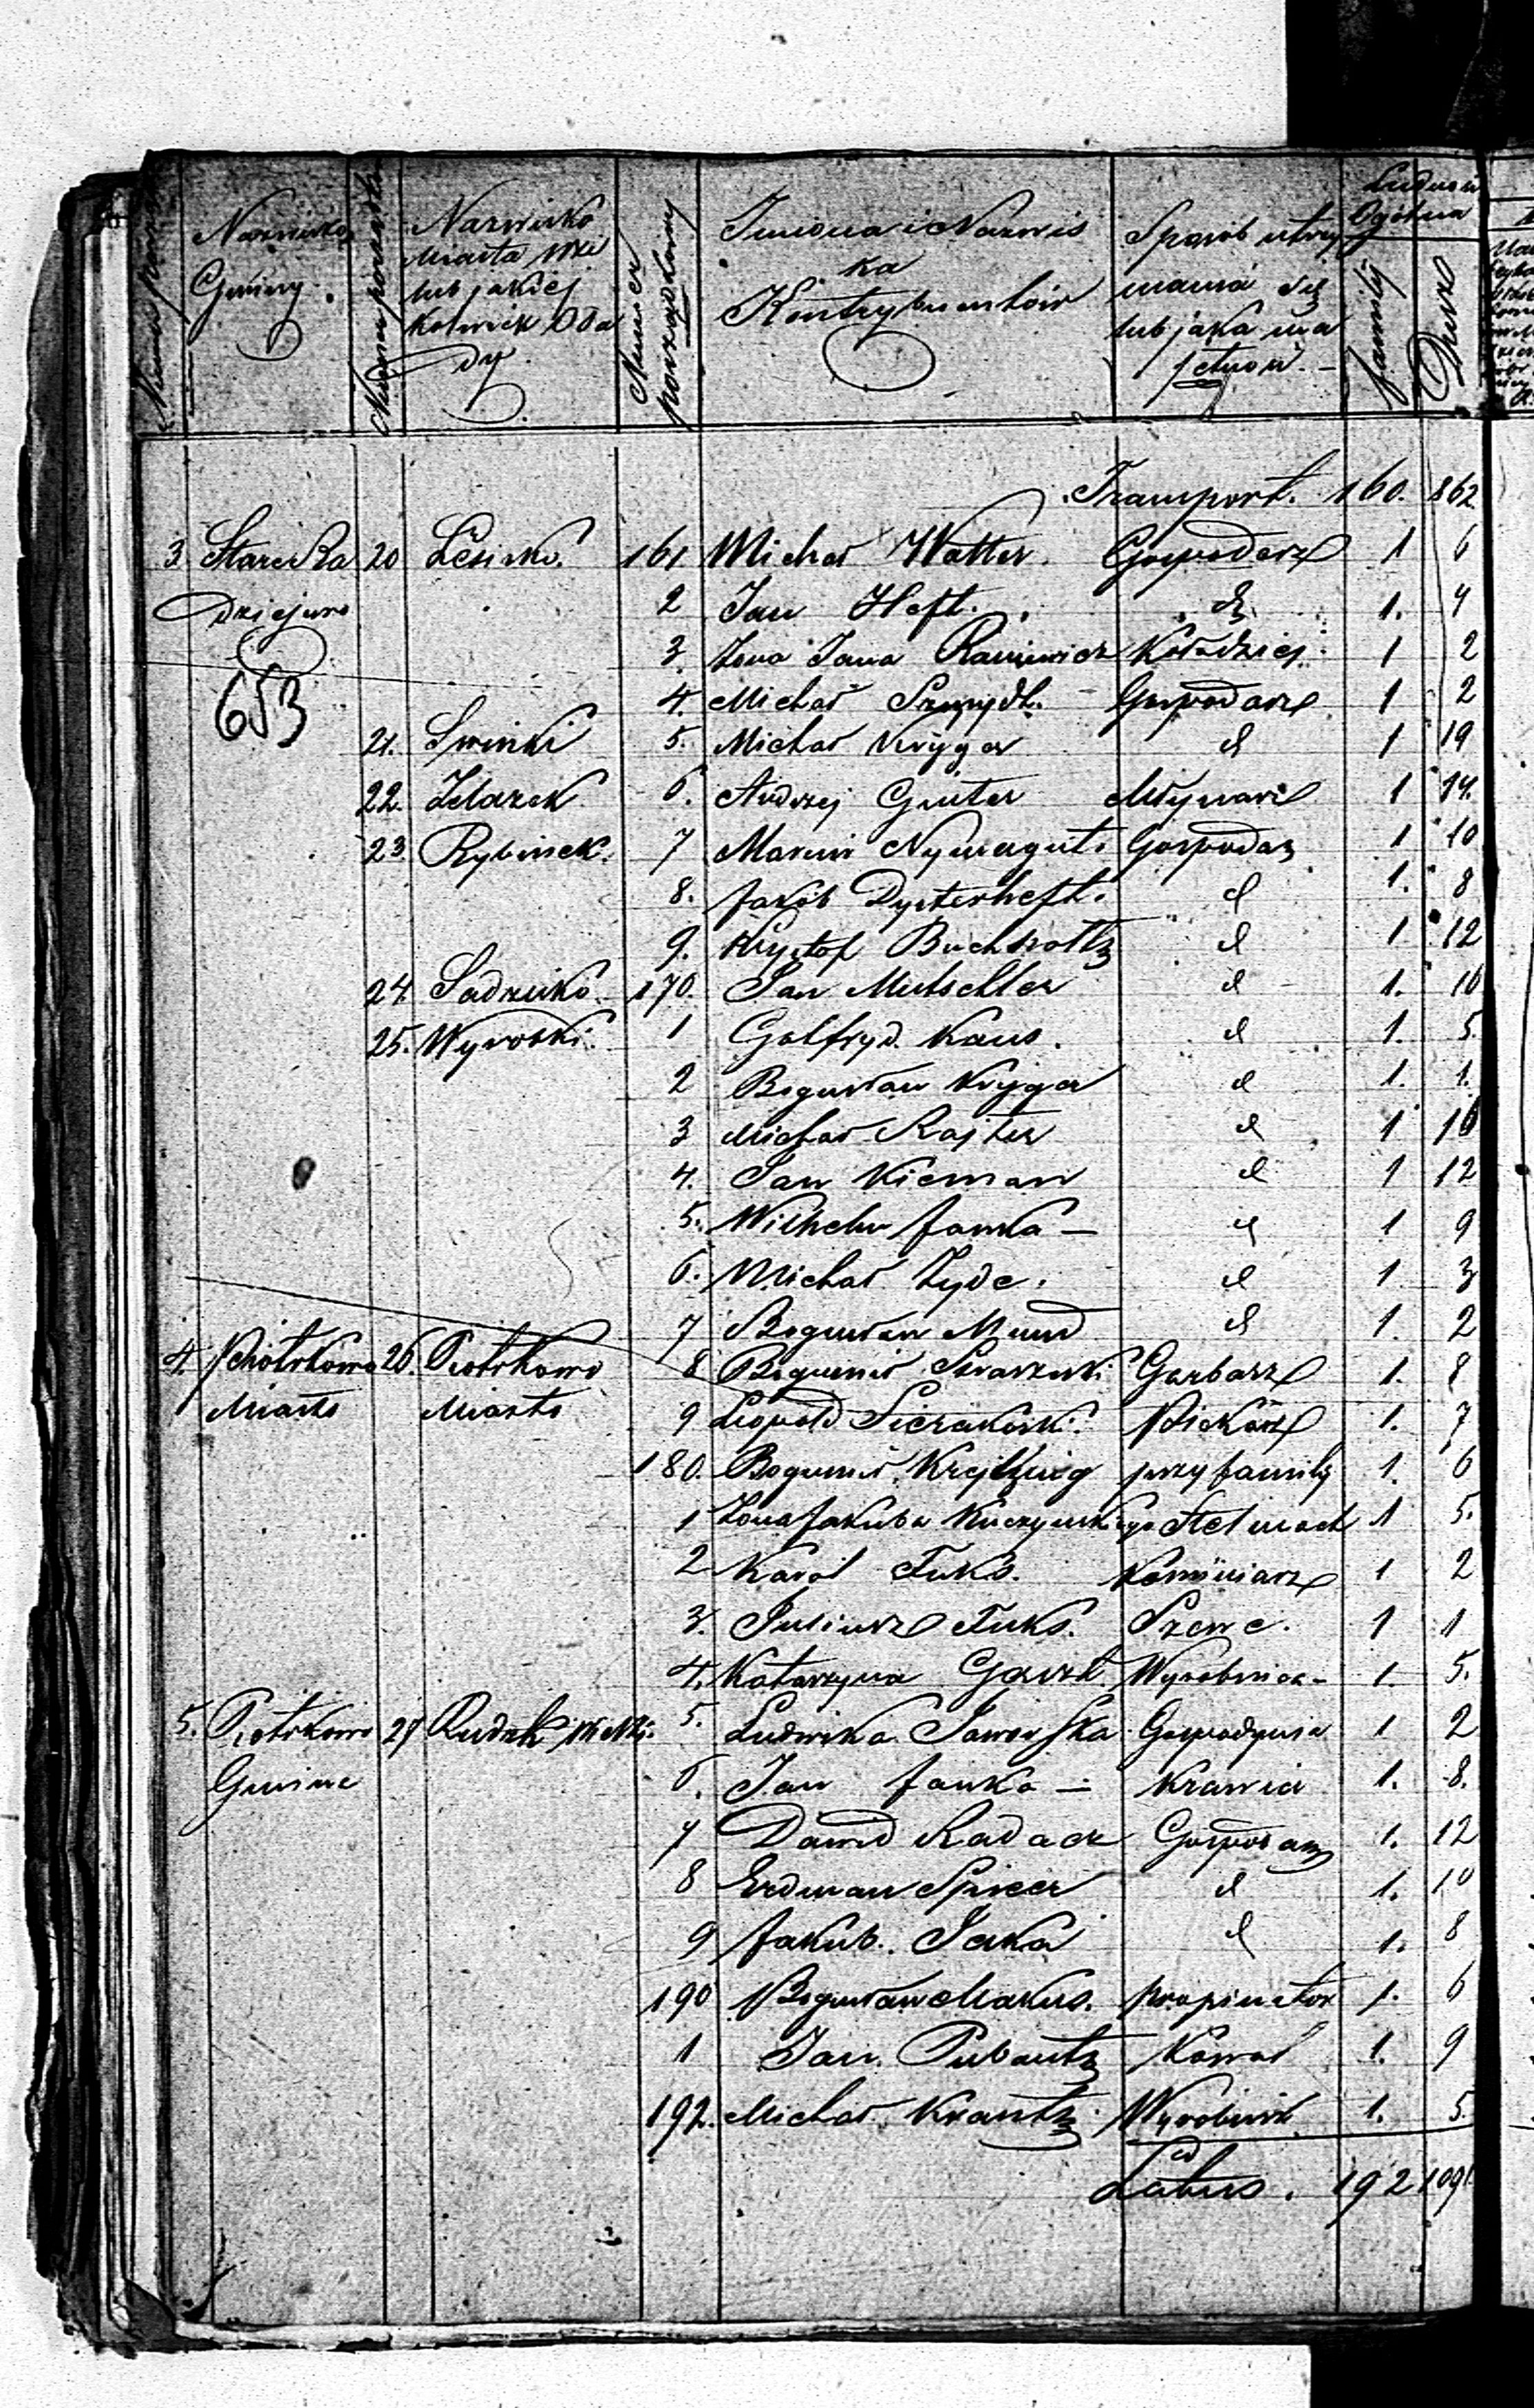 Numer porząd
Nazwisko
Gminy.
Numer porządk
Nazwisko
Miasta wsi
lub jakiej
kolwiek Osa
dy.
Numer
porządkowy
Imiona i Nazwis
ka
Kontrybuentów
Sposób utrzy
mania się
lub jaka ma
jętność.
Ludność
Ogólna
familij
Dusz
Transport. 160. 862
3 Stara Ra 20 161 Michał Watter. Gospodarz 1 6
dziejewo 2 Jan Heft. d 1. 4
3. Żona Jana Kołodziej 1 2
653 4. Michał Szmydt. Gospodarz 1 2
21. Świnki 5. Michał Kryger d 1 19
22. Żelazek 6. Andrzej Ginter Młynarz 1 14.
23 Rybinek. 7 Marcin Gospodarz 1 10
8. Jakób Dysterheft. d 1. 8
9. Krysztof Buchholtz d 1 12
24. 170. Jan Mutschler d 1. 10
25. Wyrobki. 1 Gotfryd Kaus. d 1. 5.
2 Bogusław Kryger d 1. 1.
3 Michał Rajter d 1 10
4. Jan Nieman d 1 12
5. Wilhelm Janka — d 1 9
6. Michał Zyde. d 1 3
7 Bogusław Mund d 1. 2
4. Piotrkowo 26. Piotrkowo 8 Bogumił Garbarz 1. 8
Miasto Miasto 9 Leopold Sierakoski. Piekarz 1. 7
180. Bogumił przy familij 1. 6
1 Żona Jakuba Kuczyńskiego Stelmach 1 5.
2 Karol Fuks. Kominiarz 1 2
3. Juliusz Fuks. Szewc. 1 1
4. Katarzyna Wyrobnica 1. 5.
5. Piotrkowo 27 Rudzk 5. Ludwika Jaworska Gospodynia 1 2
Gmina 6. Jan Janka — Krawiec 1. 8.
7 Dawid Radacz Gospodarz 1. 12
8 Erdman Spicer d 1. 10
9 Jakub. d 1. 8
190 Bogusław Makus. propinator 1. 6
1 Jan Kowal 1. 9
192. Michał Krantz Wyrobnik 1. 5.
Latus. 192 1091